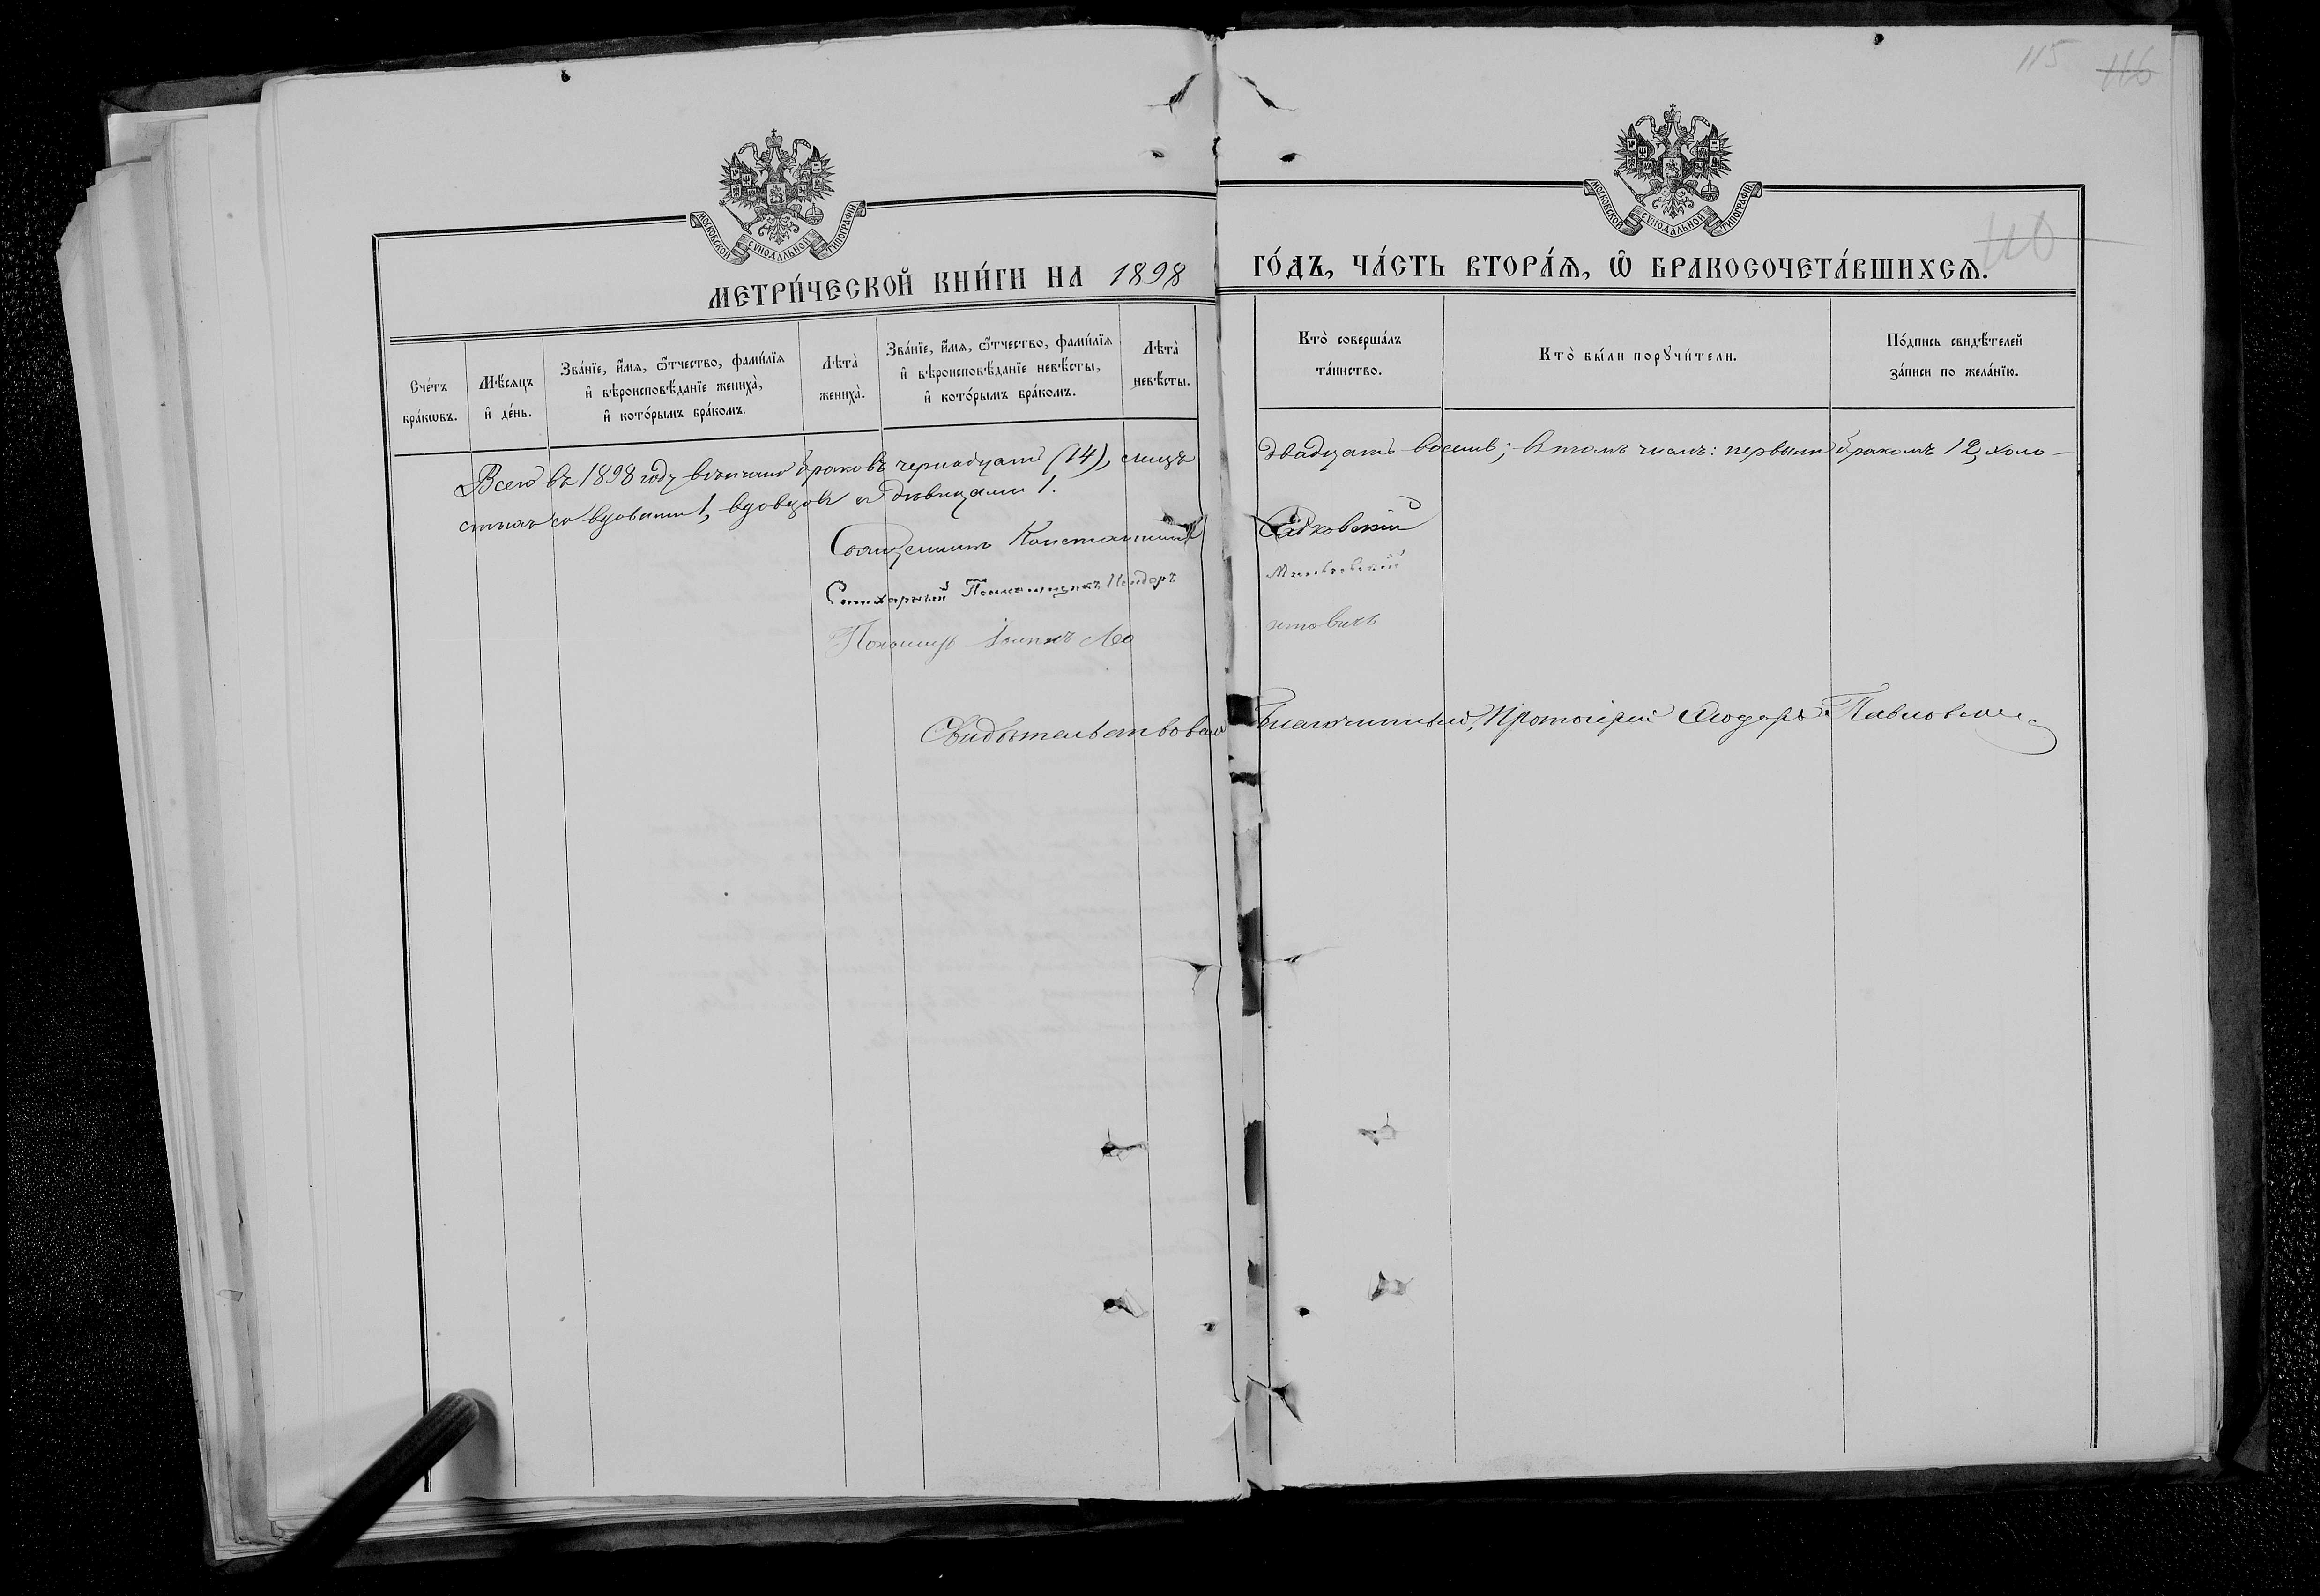 115 116
МОСКОВСКОЙ СѴНОДАЛЬНОЙ ТИПОГРАФІИ
МОСКОВСКОЙ СѴНОДАЛЬНОЙ ТИПОГРАФІИ
110
МЕТРИ́ЧЕСКОЙ КНИ́ГИ НА 1898 ГО́ДЪ, ЧА́СТЬ ВТОРА́Ѧ, Ѡ҆ БРАКОСОЧЕТА́ВШИХСѦ.
Сче́тъ бра́кѡвъ.
Мѣ́сяцъ и҆ де́нь.
Зва́нїе, и҆́мя, ѻ҆́тчество, фами́лїя и҆ вѣроисповѣ́данїе жениха̀, и҆ кото́рымъ бра́комъ.
Лѣта̀ жениха̀.
Зва́нїе, и҆́мя, ѻ҆́тчество, фами́лїя и҆ вѣроисповѣ́данїе невѣ́сты, и҆ кото́рымъ бра́комъ.
Лѣта̀ невѣ́сты.
Кто̀ соверша́лъ та́инство.
Кто̀ бы́ли порꙋчи́тели.
По́дпись свидѣ́телей за́писи по жела́нїю.
Всего въ 1898 году вѣнчано браковъ (14), лицъ двадцать восемь; в томъ числѣ: первымъ бракомъ 12, холо-
стыхъ со вдовами 1, вдовцовъ съ дѣвицами 1.
Священникъ Константинъ Садковскій
Стихарный Псаломщикъ Исидоръ
Пономарь
Свидѣтельствовалъ Благочинный, Протоіерей Ѳеодоръ Павловичъ